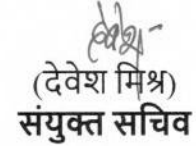 देवेश
(देवेश मिश्र)
संयुक्त सचिव